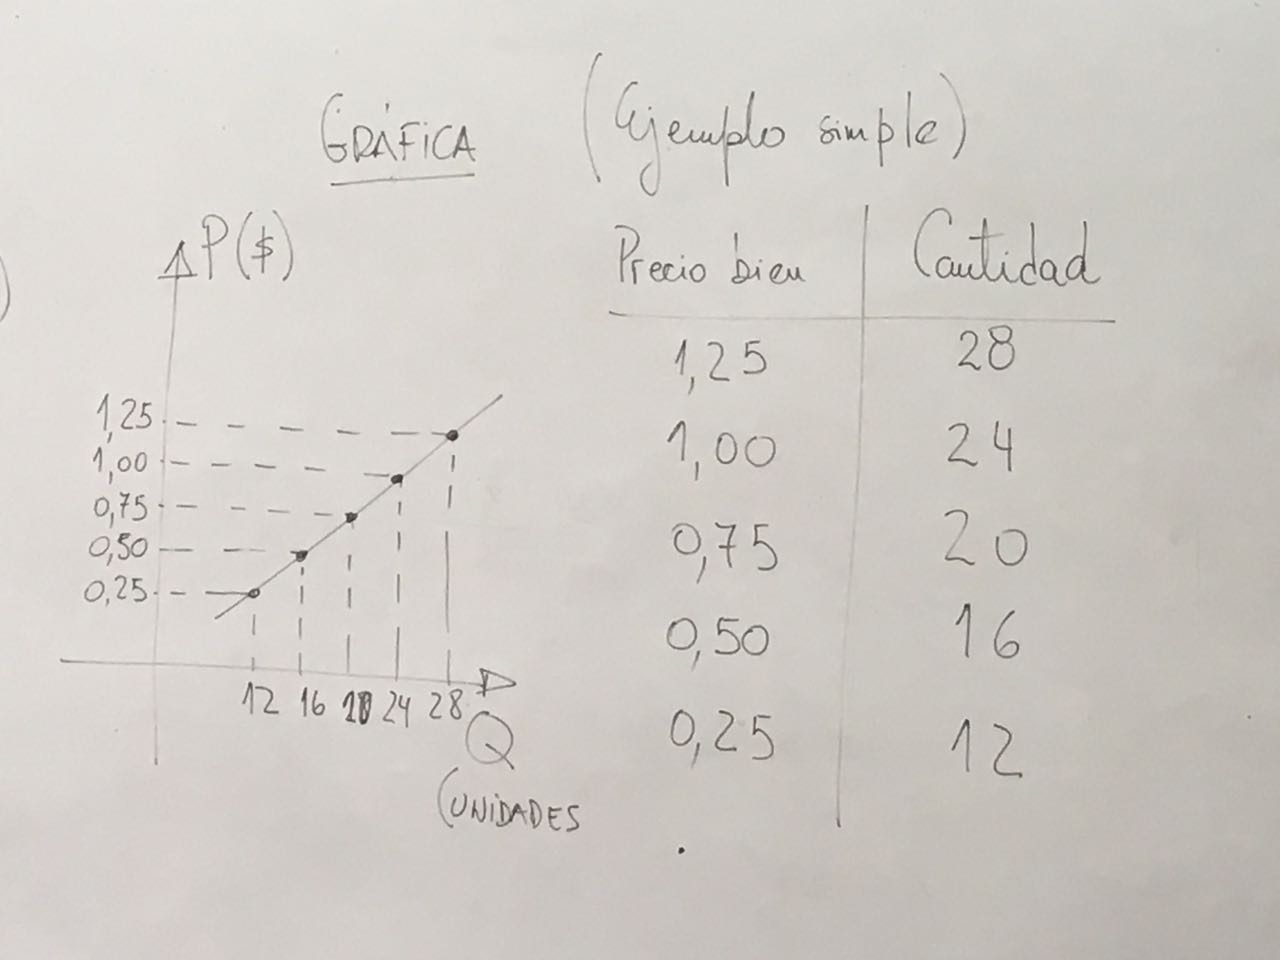 GRÁFICA (Ejemplo simple)
P($)
1,25
1,00
0,75
0,50
0,25
12 16 24 28
Q
(UNIDADES
Precio bien Cantidad
1,25 28
1,00 24
0,75 20
0,50 16
0,25 12